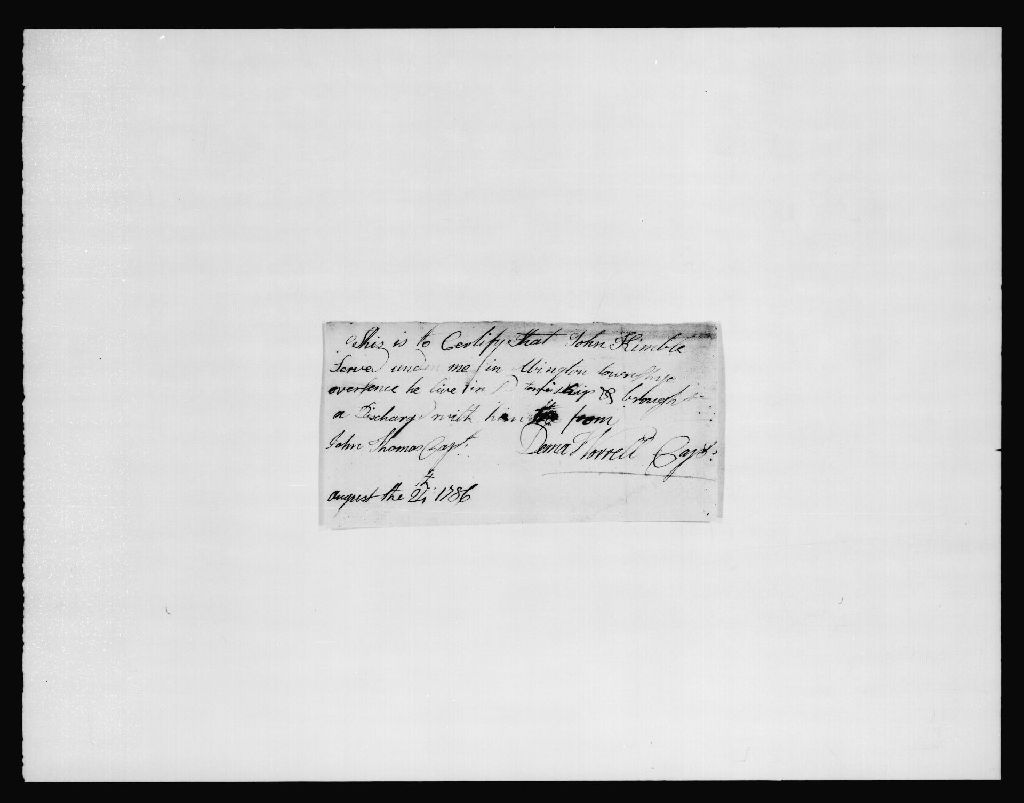 This is to Certify that John Kimble
Served under me in Abington township
ever sence he live in sd township & brough
a Discharge with him from
John Thomas Capt.
Worrell Capt.
august the 24th 1786